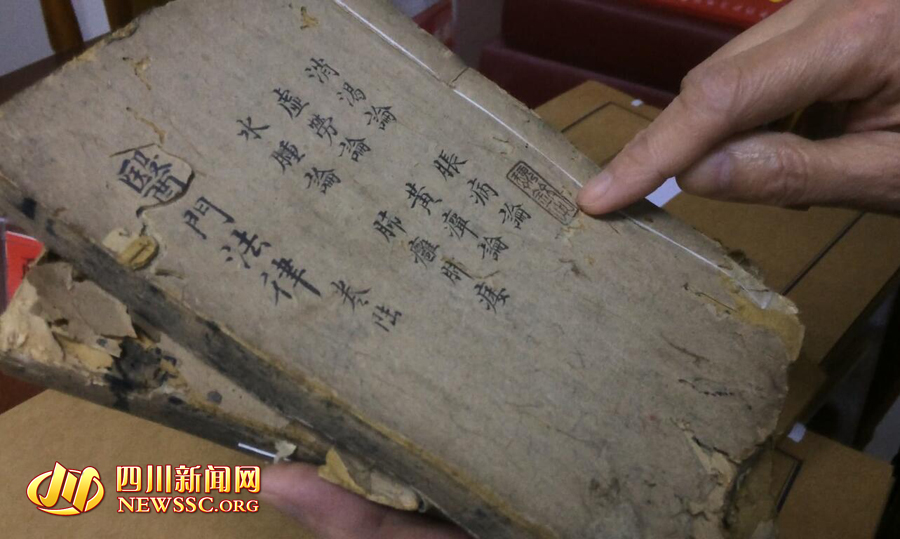 消渴論
虛勞論
水腫論
脹病論
黃癉論
肺癰肺痿
醫門法律 卷陸
四川新闻网
NEWSSC.ORG